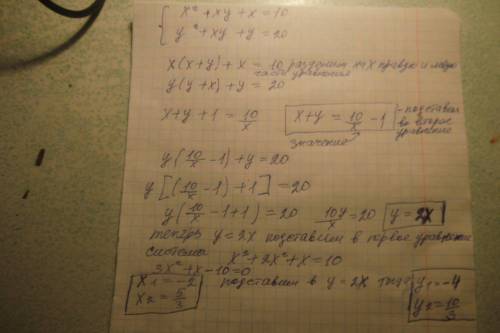 x² + xy + x = 10
y² + xy + y = 20
x(x+y) + x = 10 разделим на x правую и левую части уравнения
y(y+x) + y = 20
x+y+1 = 10/x    x+y = 10/x - 1 - подставим во второе уравнение
значение
y(10/x - 1) + y = 20
y[(10/x - 1) + 1] = 20
y(10/x - 1 + 1) = 20    10y/x = 20    y = 2x
теперь y = 2x подставим в первое уравнение
системы    x² + 2x² + x = 10
3x² + x - 10 = 0
x₁ = -2    подставим в y = 2x тогда    y₁ = -4
x₂ = 5/3    y₂ = 10/3